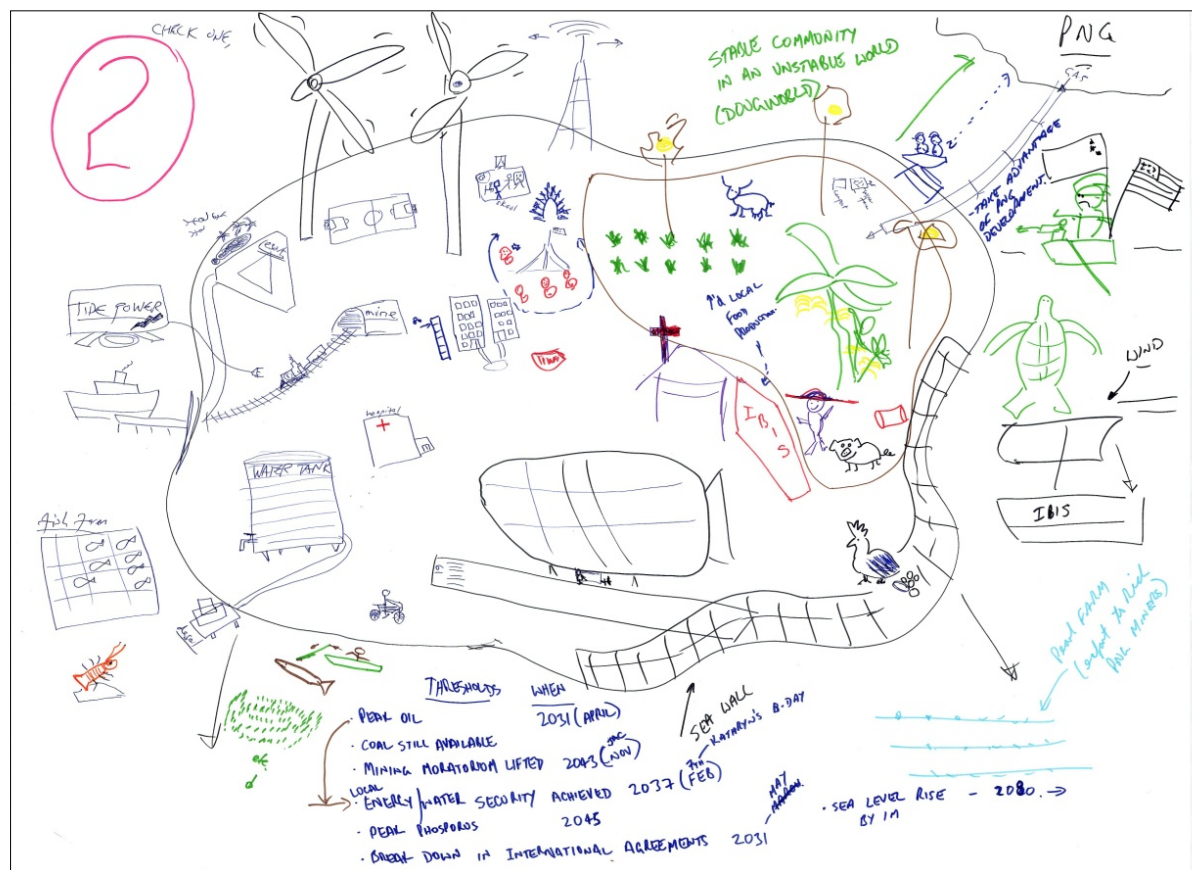 2
CHECK ONE,
STABLE COMMUNITY
IN AN UNSTABLE WORLD
(DOUGWORLD)
PNG
GAS
TAKE ADVANTAGE
OF PNG
DEVELOPMENT.
school
TIDE POWER
mine
↑'d LOCAL
FOOD
PRODUCTION.
WIND
IBIS
IBIS
hospital
WATER TANK
fish farm
desal
Pearl FARM
(export to Rich
PNG MINERS)
SEA WALL
THRESHOLDS WHEN
PEAK OIL 2031 (APRIL)
· COAL STILL AVAILABLE
· MINING MORATORIUM LIFTED 2043 (NOV)
LOCAL
· ENERGY/WATER SECURITY ACHIEVED 2037 (7TH FEB)
KATHRYN'S B-DAY
· PEAK PHOSPORUS 2045
· BREAK DOWN IN INTERNATIONAL AGREEMENTS 2031
MAY
· SEA LEVEL RISE - 2080. →
BY 1M